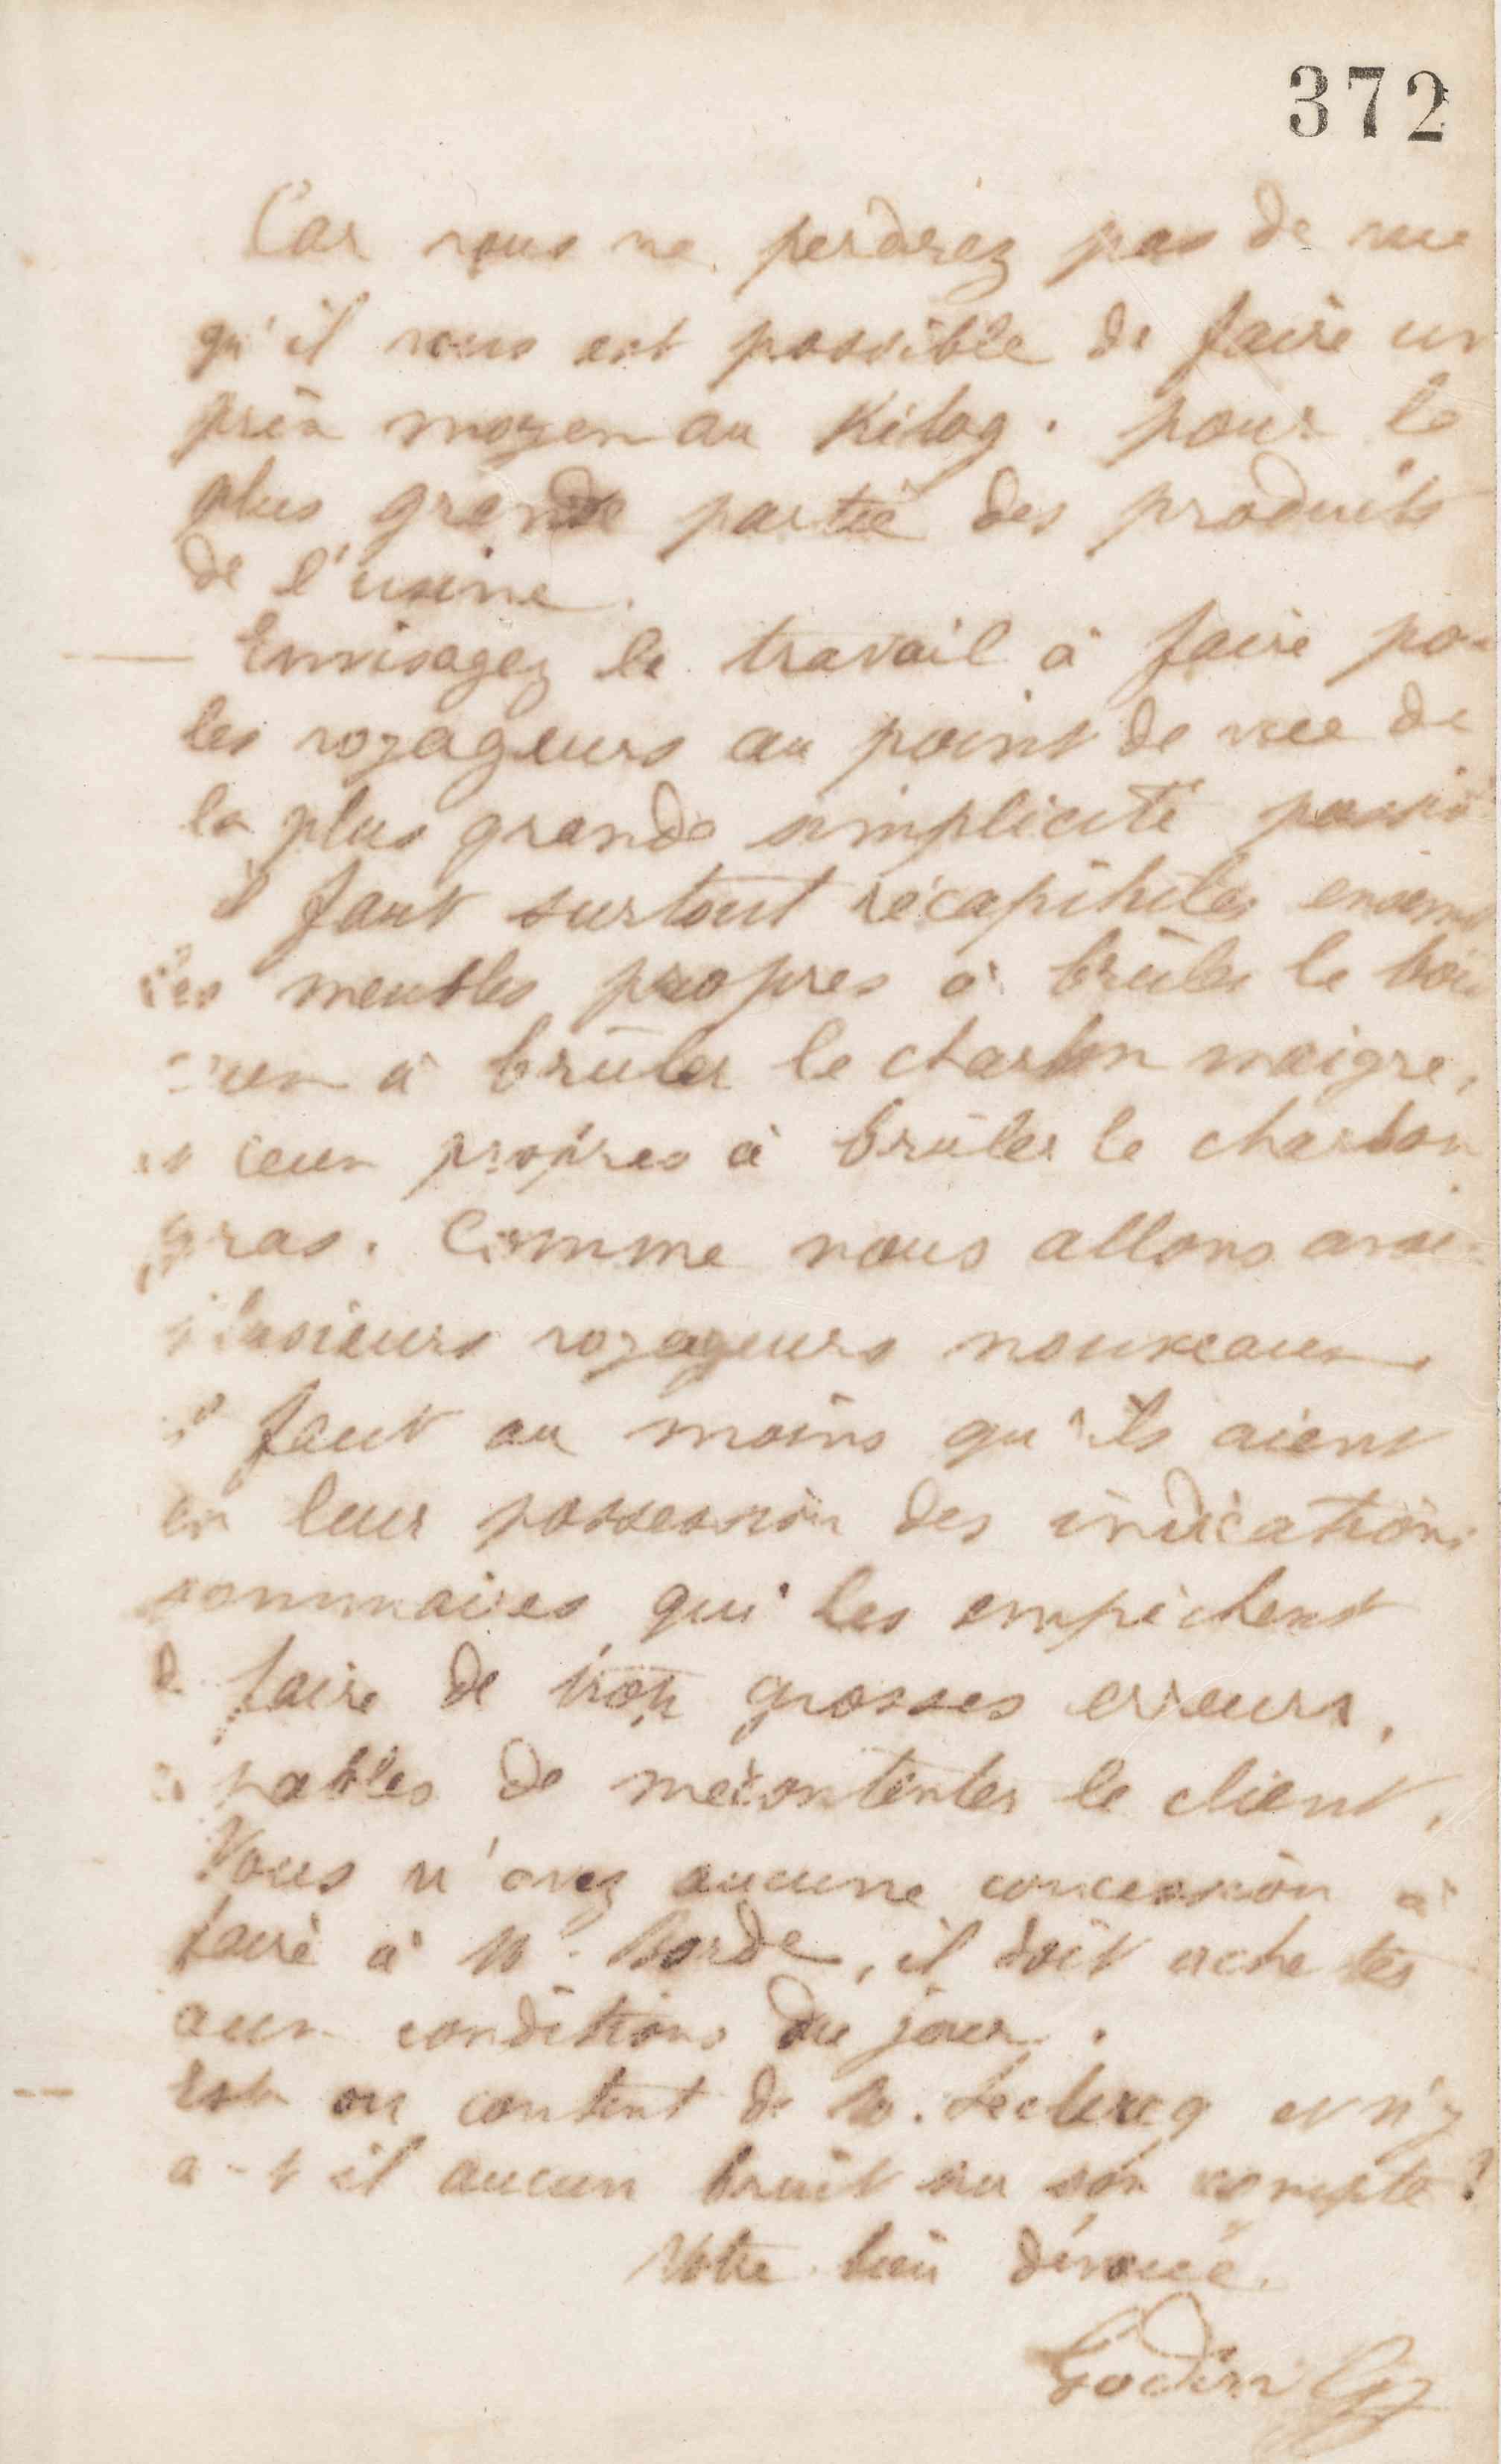 372
Car vous ne perdrez pas de vue
qu'il vous est possible de faire un
prix moyen au Kilog. pour la
plus grande partie des produits
de l'usine.
— Envisagez le travail à faire pour
les voyageurs au point de vue de
la plus grande simplicité possib
il faut surtout récapituler ensemb
les meubles propres à brûler le bois
ceux à brûler le charbon maigre,
et ceux propres à brûler le charbon
gras. Comme nous allons avoir
plusieurs voyageurs nouveaux
il faut au moins qu'ils aient
en leur possession des indications
sommaires qui les empêchent
de faire de trop grosses erreurs,
capables de mécontenter le client.
Vous n'avez aucune concession à
faire à M. Borde, il doit acheter
aux conditions du jour.
— Est on content de M. Leclercq et n'y
a-t-il aucun bruit sur son compte?
Votre bien dévoué.
Godin